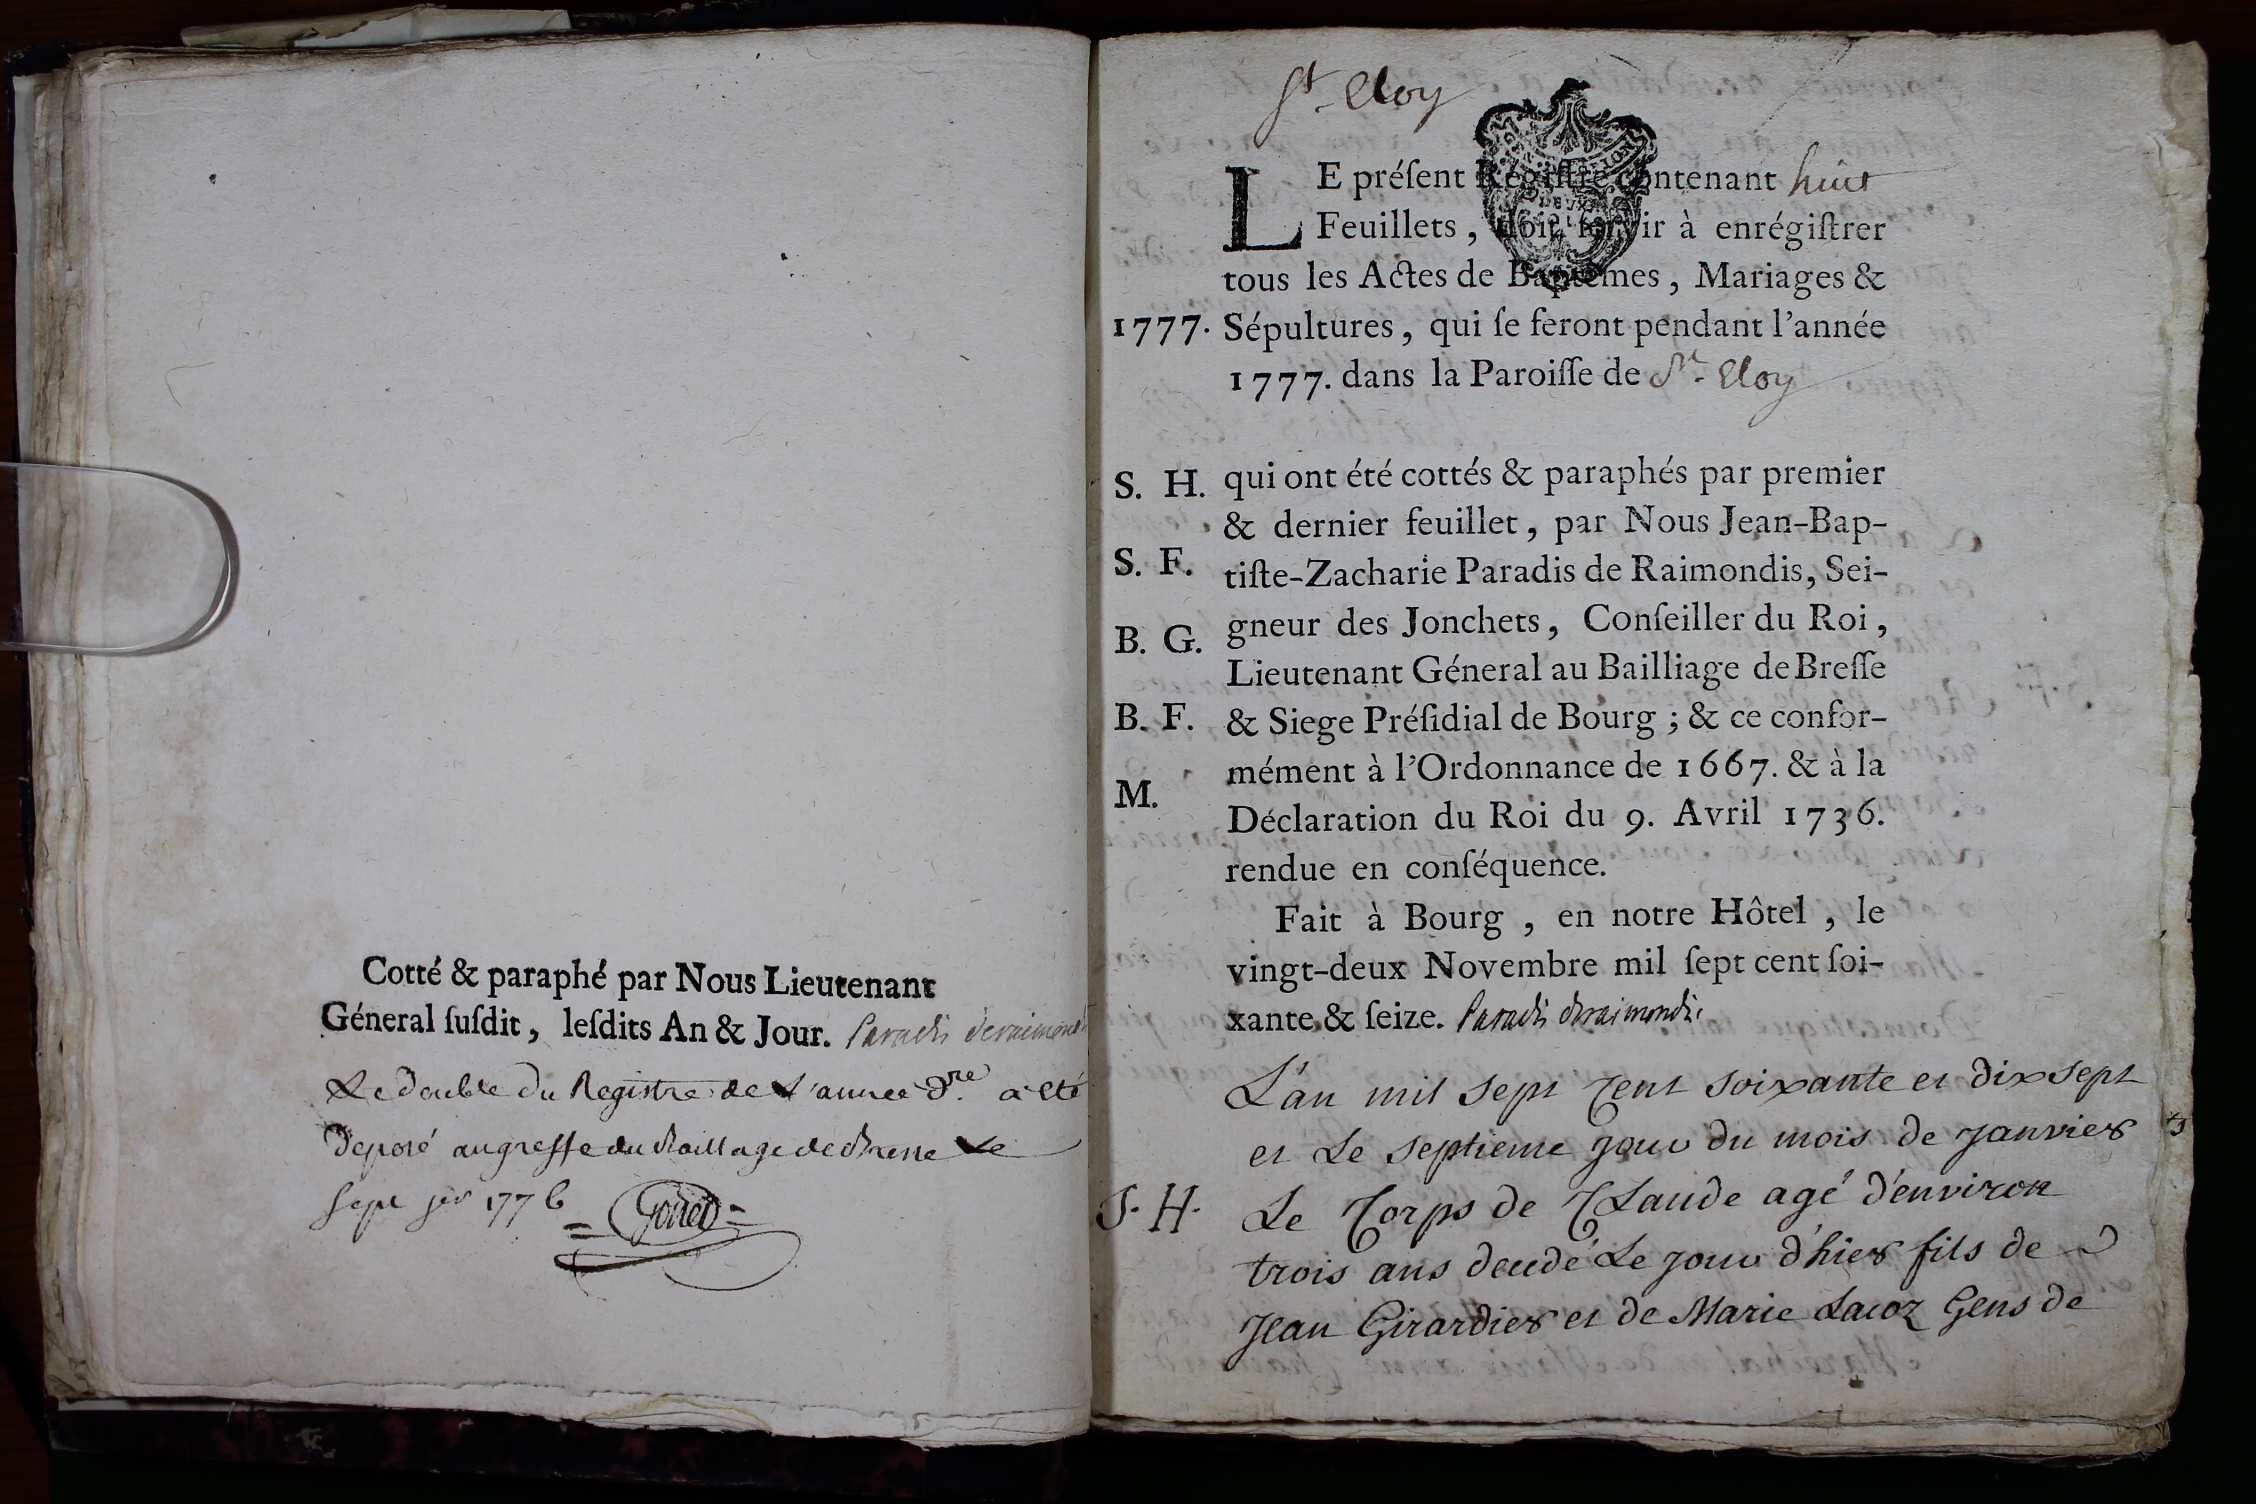 Cotté & paraphé par Nous Lieutenant
Géneral ſuſdit, leſdits An & Jour. Paradis deraimondis
Le double du Registre de L'année d.re a été
deposé au greffe du Baillage de Bresse Le
sept jer 1776
St. Eloy
LE préſent Régiſtre contenant huit
Feuillets, doit ſervir à enrégiſtrer
tous les Actes de Baptêmes, Mariages &
1777. Sépultures, qui ſe feront pendant l'année
1777. dans la Paroiſſe de St. Eloy
S. H. qui ont été cottés & paraphés par premier
& dernier feuillet, par Nous Jean-Bap-
S. F. tiſte-Zacharie Paradis de Raimondis, Sei-
B. G. gneur des Jonchets, Conſeiller du Roi,
Lieutenant Géneral au Bailliage de Breſſe
B. F. & Siege Préſidial de Bourg ; & ce confor-
mément à l'Ordonnance de 1667. & à la
M. Déclaration du Roi du 9. Avril 1736.
rendue en conſéquence.
Fait à Bourg, en notre Hôtel, le
vingt-deux Novembre mil ſept cent ſoi-
xante & ſeize. Paradis deraimondis
L'an mil sept Cent soixante et dix sept
et Le septieme jour du mois de janvier
S. H. Le Corps de Claude agé d'environ
trois ans decedé Le jour d'hier fils de
Jean Girardier et de Marie Lacoz Gens de